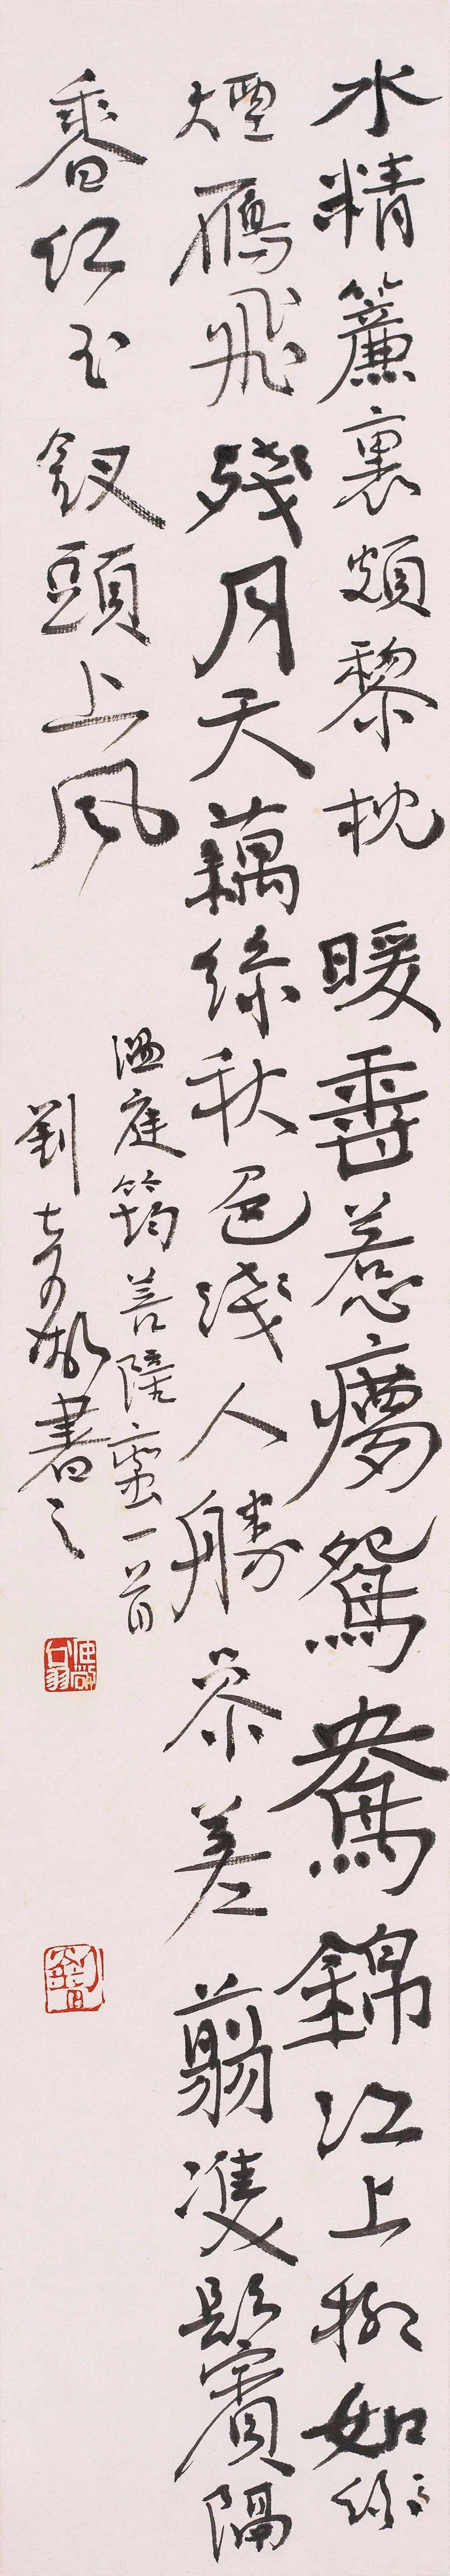 水精簾裏頗黎枕暖香惹夢鴛鴦錦江上柳如
煙鴈飛殘月天藕絲秋色淺人勝參差翦雙鬢隔
香紅玉釵頭上風
溫庭筠菩薩蠻一首
劉 書之